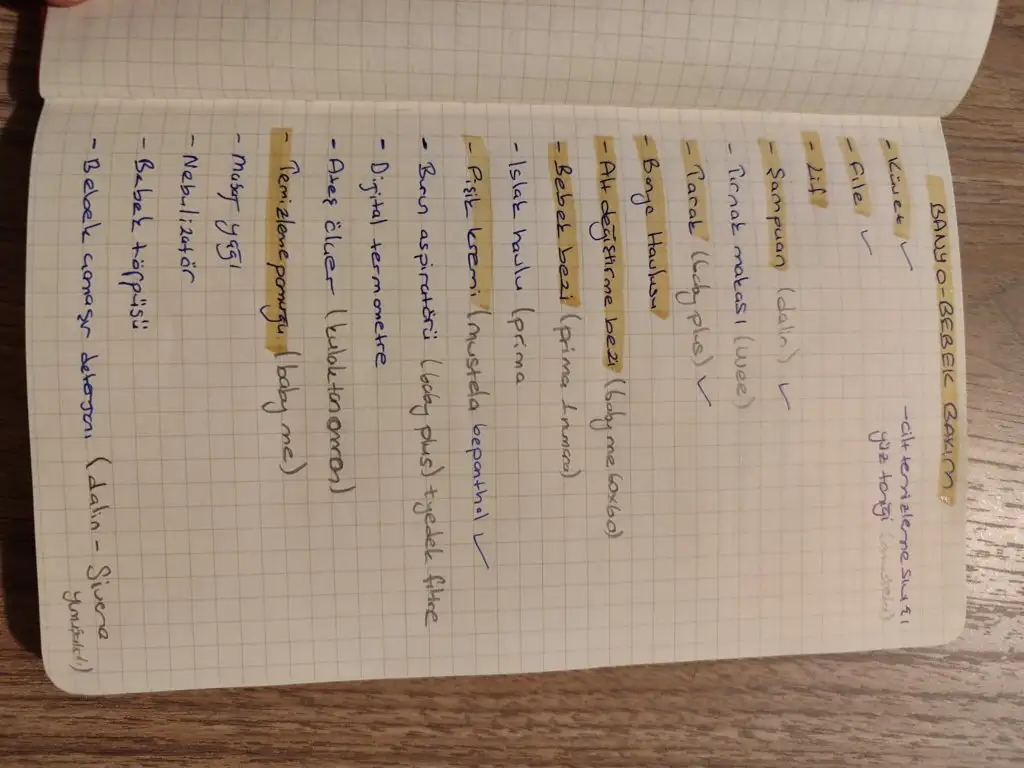 BANYO-BEBEK BAKIM
- Küvet ✓
- File ✓
- Lif
- Şampuan (dalin) ✓
- Tırnak makası (wee)
- Tarak (baby plus) ✓
- Banyo Havlusu
- Alt değiştirme bezi (baby me 60x60)
- Bebek bezi (prima 1 num)
- Islak havlu (prima
- Pişik kremi (mustela bepanthol ✓
- Burun aspiratörü (baby plus) + yedek filtre
- Digital termometre
- Ateş ölçer (kulaktan omron)
- Temizleme pamuğu (baby me)
- Masaj yağı
- Nebulizatör
- Bebek töppüsü
- Bebek çamaşır deterjanı (dalin - Siveno
yumuşatıcı)
- cilt temizleme suyu
yüz temizliği